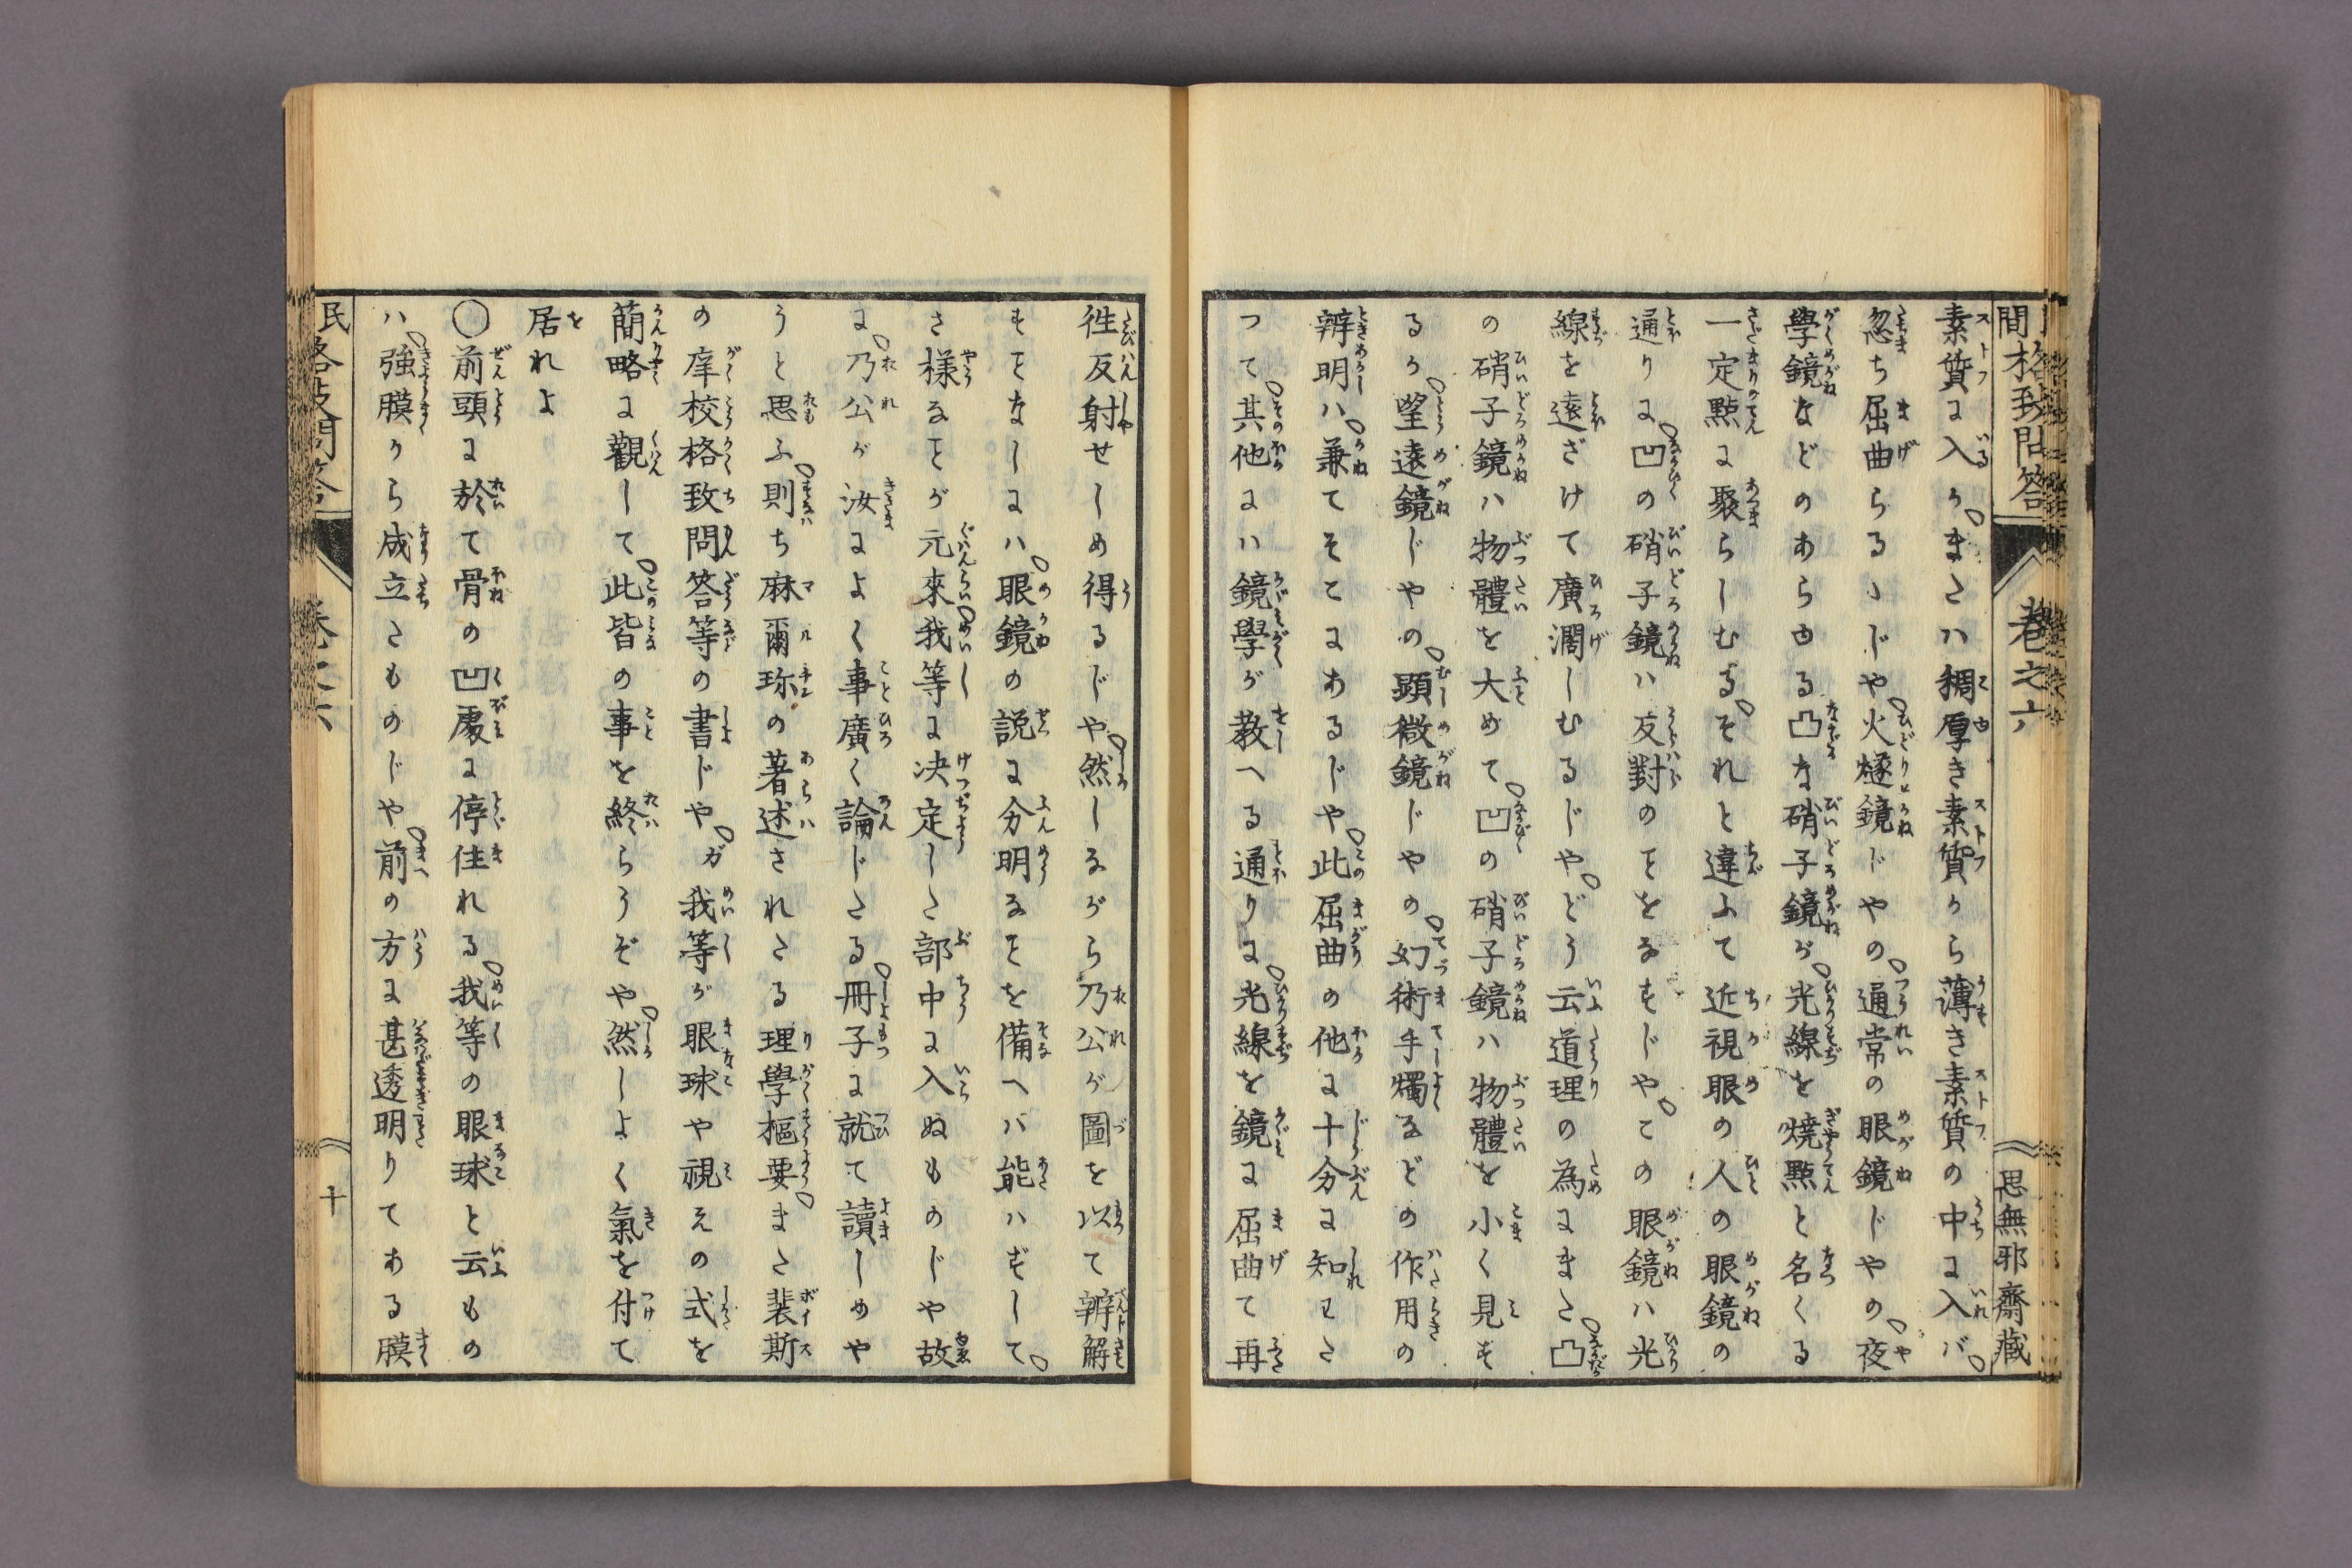 間格致問答 巻之六 思無邪齋藏
素質に入るか、またハ稠厚き素質から薄き素質の中に入バ、
忽ち屈曲らるゝじや、火燧鏡じやの、通常の眼鏡じやの、夜
學鏡などのあらゆる凸な硝子鏡が、光線を燒點と名くる
一定點に聚らしむる、それと違ふて近視眼の人の眼鏡の
通りに、凹の硝子鏡ハ反對のことをなすじや、この眼鏡ハ光
線を遠ざけて廣濶しむるじや、どう云道理の為にまた、凸
の硝子鏡ハ物體を大めて、凹の硝子鏡ハ物體を小く見す
るか、望遠鏡じやの、顕微鏡じやの、幻術手燭などの作用の
辨明ハ、兼てそこにあるじや、此屈曲の他に十分に知れた
つて、其他にハ鏡學が教へる通りに、光線を鏡に屈曲て再
徃反射せしめ得るじや、然しながら乃公が圖を以て辨解
することなしにハ、眼鏡の説に分明なことを備へバ能ハずして、
さ様なことが元來、我等に决定した部中に入ぬものじや故
に、乃公が汝によく事廣く論じたる、冊子に就て讀しめや
うと思ふ、則ち麻爾玪の著述されたる理學樞要、また裴斯
の庠校格致問答等の書じや、ガ我等が眼球や視えの式を
簡略に觀して、此皆の事を終らうぞや、然しよく氣を付て
居れよ
〇前頭に於て骨の凹處に停住れる、我等の眼球と云もの
ハ、強膜から成立たものじや、前の方に甚透明りてある膜
民格致問答 巻之六 十